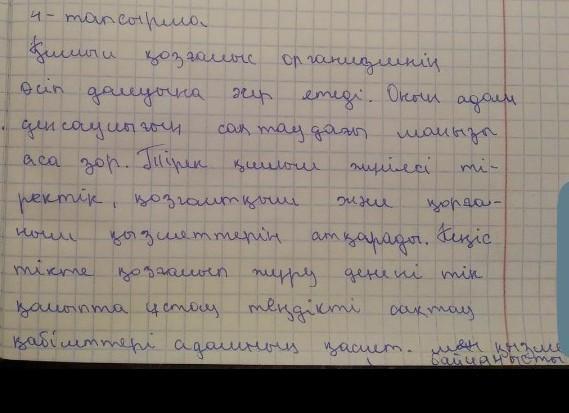 4-тапсырма.
Қимыл қозғалыс организмнің
өсіп дамуына әсер етеді. Оның адам
денсаулығын сақтаудағы маңызы
аса зор. Тірек қимыл жүйесі ті-
ректік, қозғалтқыш және қорға-
ныш қызметтерін атқарады. Кеңіс
тікте қозғалып жүру денені тік
қалыпта ұстау теңдікті сақтау
қабілеттері адамның қасиет. мен қызме
байланысты